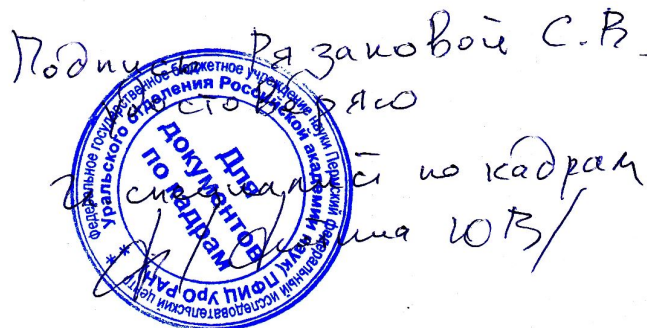 Подпись Рязановой С.В.
удостоверяю
Гл специалист по кадрам
Ю В/
Федеральное государственное бюджетное учреждение науки Пермский федеральный исследовательский центр
Уральского отделения Российской академии наук (ПФИЦ УрО РАН)
Для
документов
по кадрам